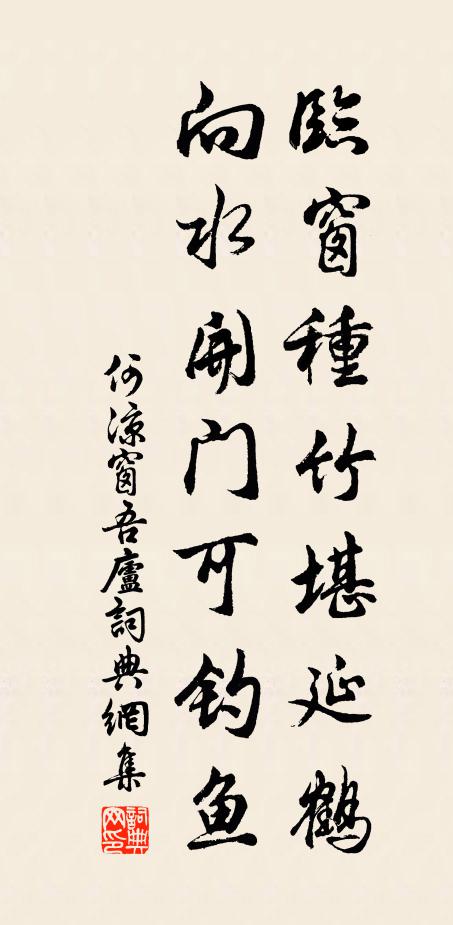 臨窗種竹堪延鶴
向水開门可钓魚
何涼窗吾廬詞典網集
詞典网印